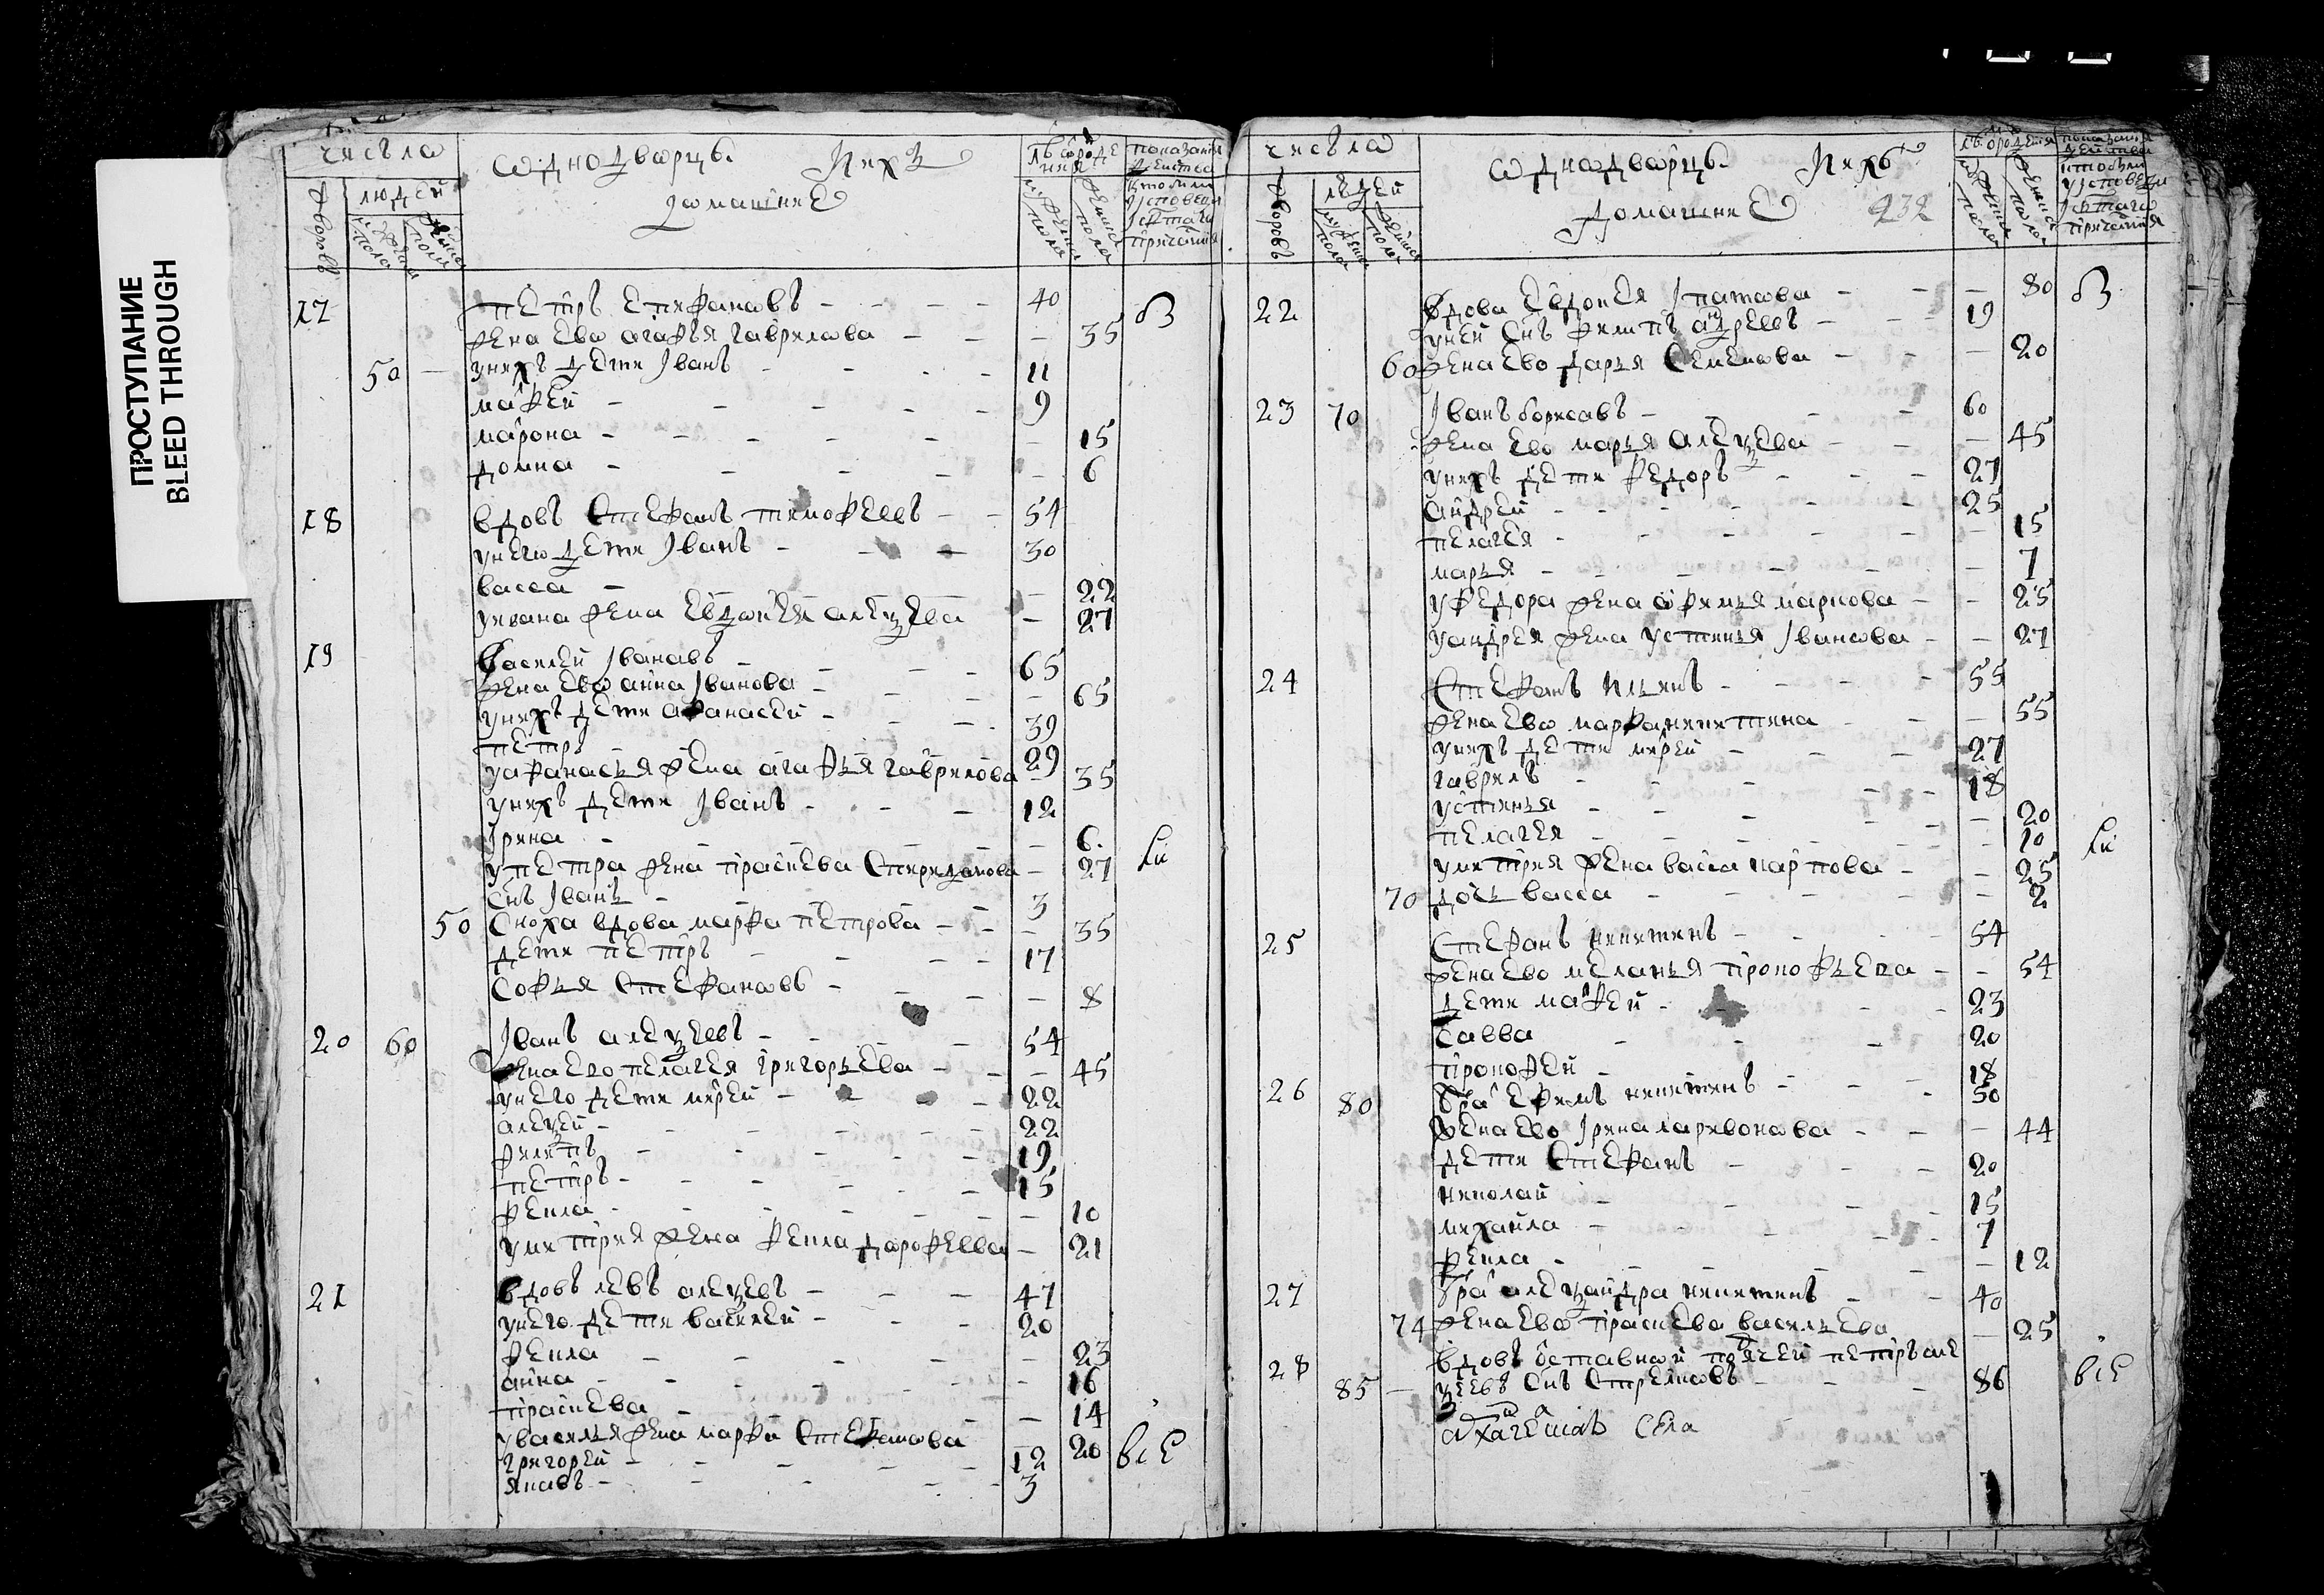 ПРОСТУПАНИЕ
BLEED THROUGH
числа
однодворцы Ихъ
домашние
людей
дворовъ
17 петръ епифановъ 40
жена ево агафья гаврилова 35
50 унихъ дети Iванъ 11
марфей 9
марона 15
домна 6
18 вдовъ Стефанъ тимофеевъ 54
унего дети Iванъ 30
васса 22
уивана жена Евдокея алеѯева 27
19 Василей Iвановъ 65
жена ево анна Iванова 65
унихъ дети афанасей 39
петръ 29
уафанасья жена агафья гаврилова 35
унихъ дети Iванъ 12
Iрина 6
упетра жена прасковa Спиридонова 27
Снъ Iванъ 3
50 Сноха вдова марфа петрова 35
дети петръ 17
Софья Стефановъ 8
20 60 Iванъ алеѯеевъ 54
жена ево пелагея григорьева 45
унего дети митрей 22
алеѯей 22
филипъ 19
петръ 15
фекла 10
умитрия жена фекла дорофеева 21
21 вдовъ левъ алеѯевъ 47
унего дети василей 20
фекла 23
анна 16
прасковa 14
увасилья жена марфа Стефанова 20
григорей 12
Яковъ 3
все
числа
однадворцы Ихъ
домашние 232
людей
дворовъ
22 Вдова Евдокея Iпатова 80
уней Снъ филипъ андреевъ 19
60 жена ево дарья Семенова 20
23 70 Iванъ борисавъ 60
жена ево марья алеѯева 45
унихъ дети федоръ 27
андрей 25
пелагея 15
марья 7
уфедора жена афимья маркова 25
уандрея жена устинья Iванова 27
24 Стефанъ Ильинъ 55
жена ево марфа никитина 55
унихъ дети митрей 27
гаврилъ 18
устинья 20
пелагея 10
умитрия жена васа карпова 25
70 дочь васса 2
25 Стефанъ никитинъ 54
жена ево меланья прокофьева 54
дети марфей 23
Савва 20
прокофей 18
26 80 бра Ефимъ никитинъ 50
жена ево Iрина ларивонава 44
дети Стефанъ 20
николай 15
михайла 7
фекла 12
27 бра алеѯандра никитинъ 40
74 жена ево прасковa васильева 25
28 вдовъ оставной петръ але
85 ѯеевъ Снъ Стрелковъ 86
все
Села